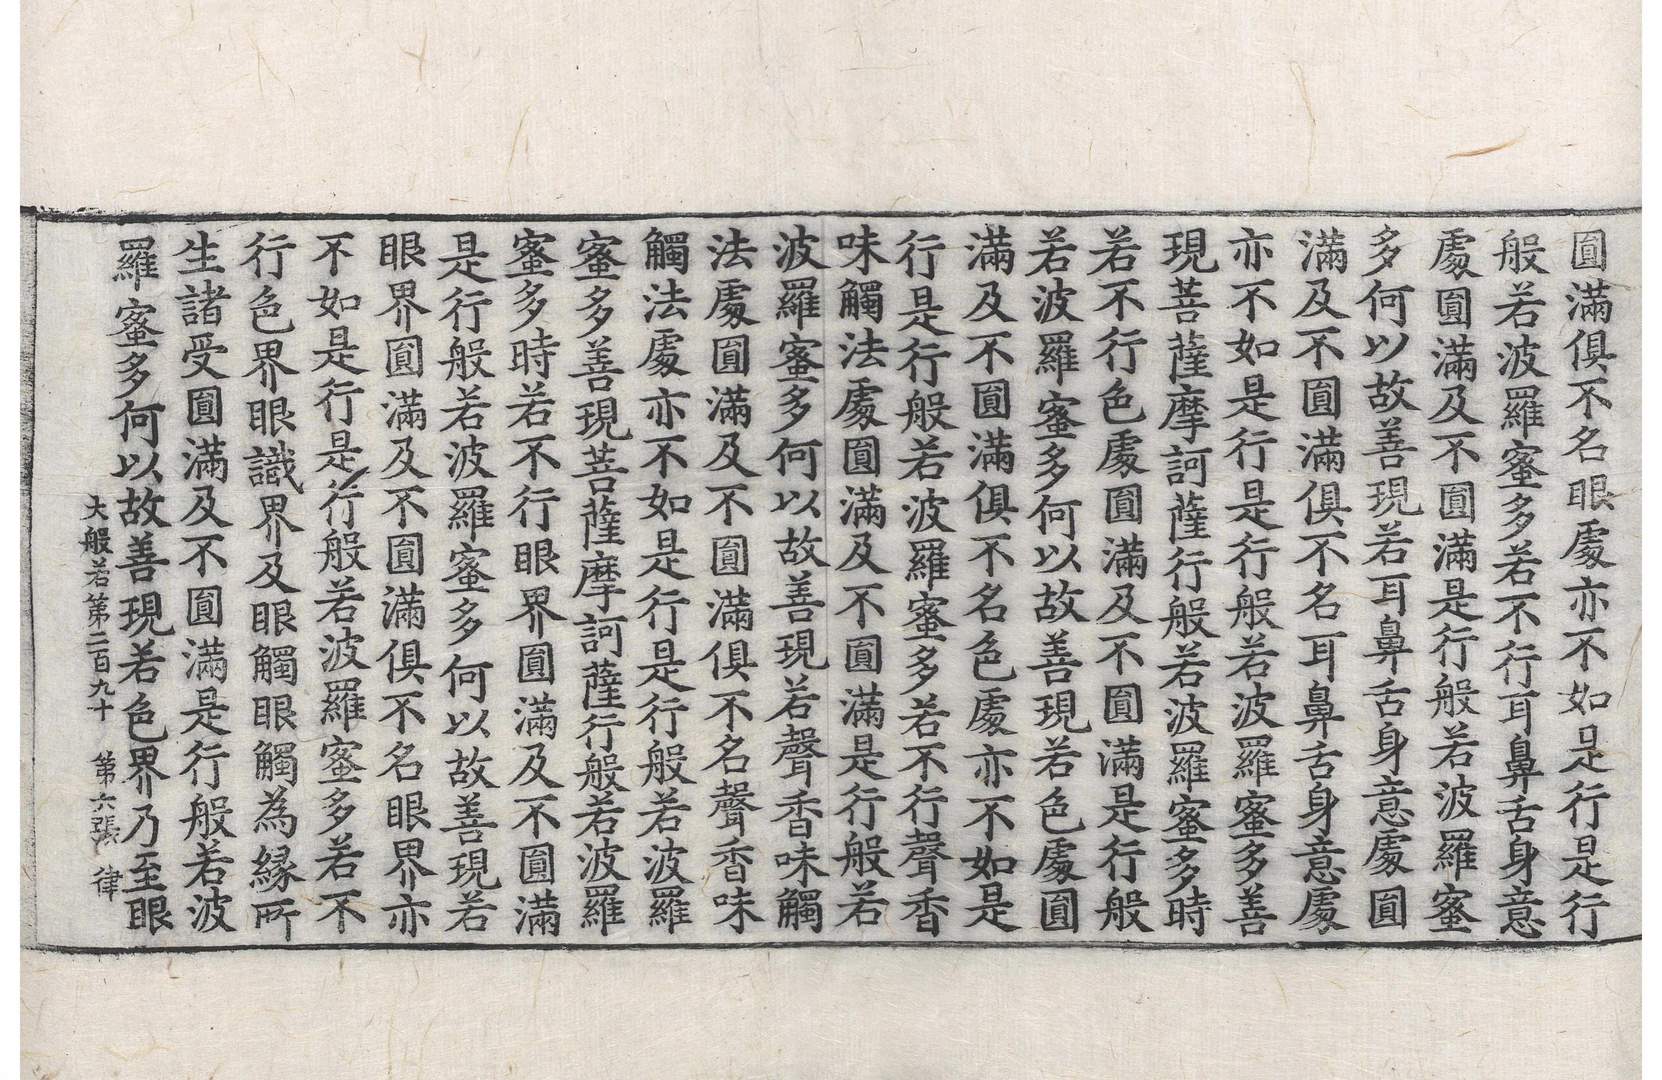 圓滿俱不名眼處亦不如是行是行
般若波羅蜜多若不行耳鼻舌身意
處圓滿及不圓滿是行般若波羅蜜
多何以故善現若耳鼻舌身意處圓
滿及不圓滿俱不名耳鼻舌身意處
亦不如是行是行般若波羅蜜多善
現菩薩摩訶薩行般若波羅蜜多時
若不行色處圓滿及不圓滿是行般
若波羅蜜多何以故善現若色處圓
滿及不圓滿俱不名色處亦不如是
行是行般若波羅蜜多若不行聲香
味觸法處圓滿及不圓滿是行般若
波羅蜜多何以故善現若聲香味觸
法處圓滿及不圓滿俱不名聲香味
觸法處亦不如是行是行般若波羅
蜜多善現菩薩摩訶薩行般若波羅
蜜多時若不行眼界圓滿及不圓滿
是行般若波羅蜜多何以故善現若
眼界圓滿及不圓滿俱不名眼界亦
不如是行是行般若波羅蜜多若不
行色界眼識界及眼觸眼觸為緣所
生諸受圓滿及不圓滿是行般若波
羅蜜多何以故善現若色界乃至眼
大般若第二百九十 第六張 律